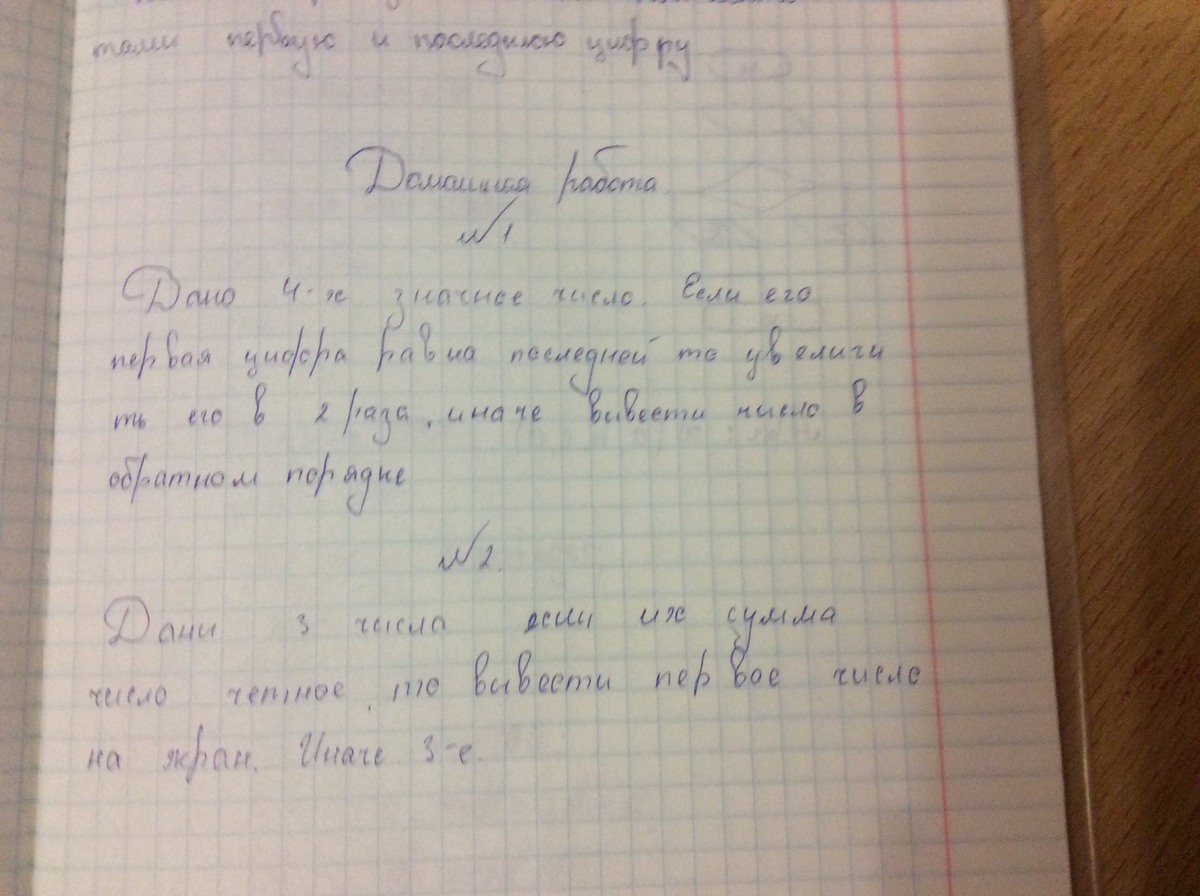 тами первую и последнюю цифру
Домашняя работа.
№1
Дано 4-х значное число. Если его
первая цифра равна последней то увеличи
ть его в 2 раза, иначе вивести число в
обратном порядке
№2.
Дани 3 числа если их сумма
число четное, то вивести первое число
на экран. Иначе 3-е.